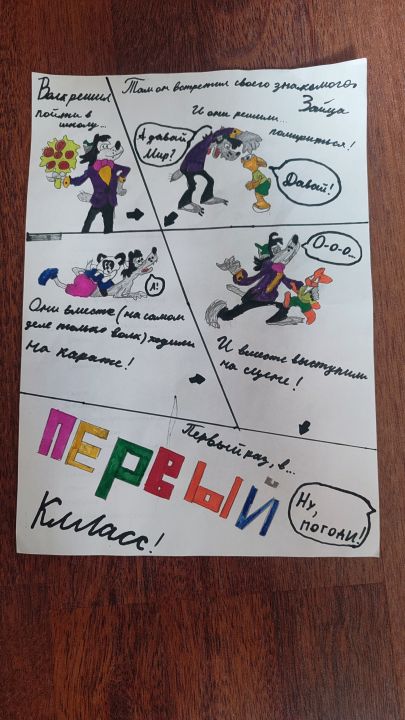 Волк решил
пойти в
школу...
Там он встретил своего знакомого
Зайца
И они решили...
помириться!
А давай
Мир?
Давай!
А!
Они вместе (на самом
деле только волк) ходили
на карате!
О-о-о...
И вместе выступили
на сцене!
Первый раз, в...
ПЕРВЫЙ
Класс!
Ну,
погоди!